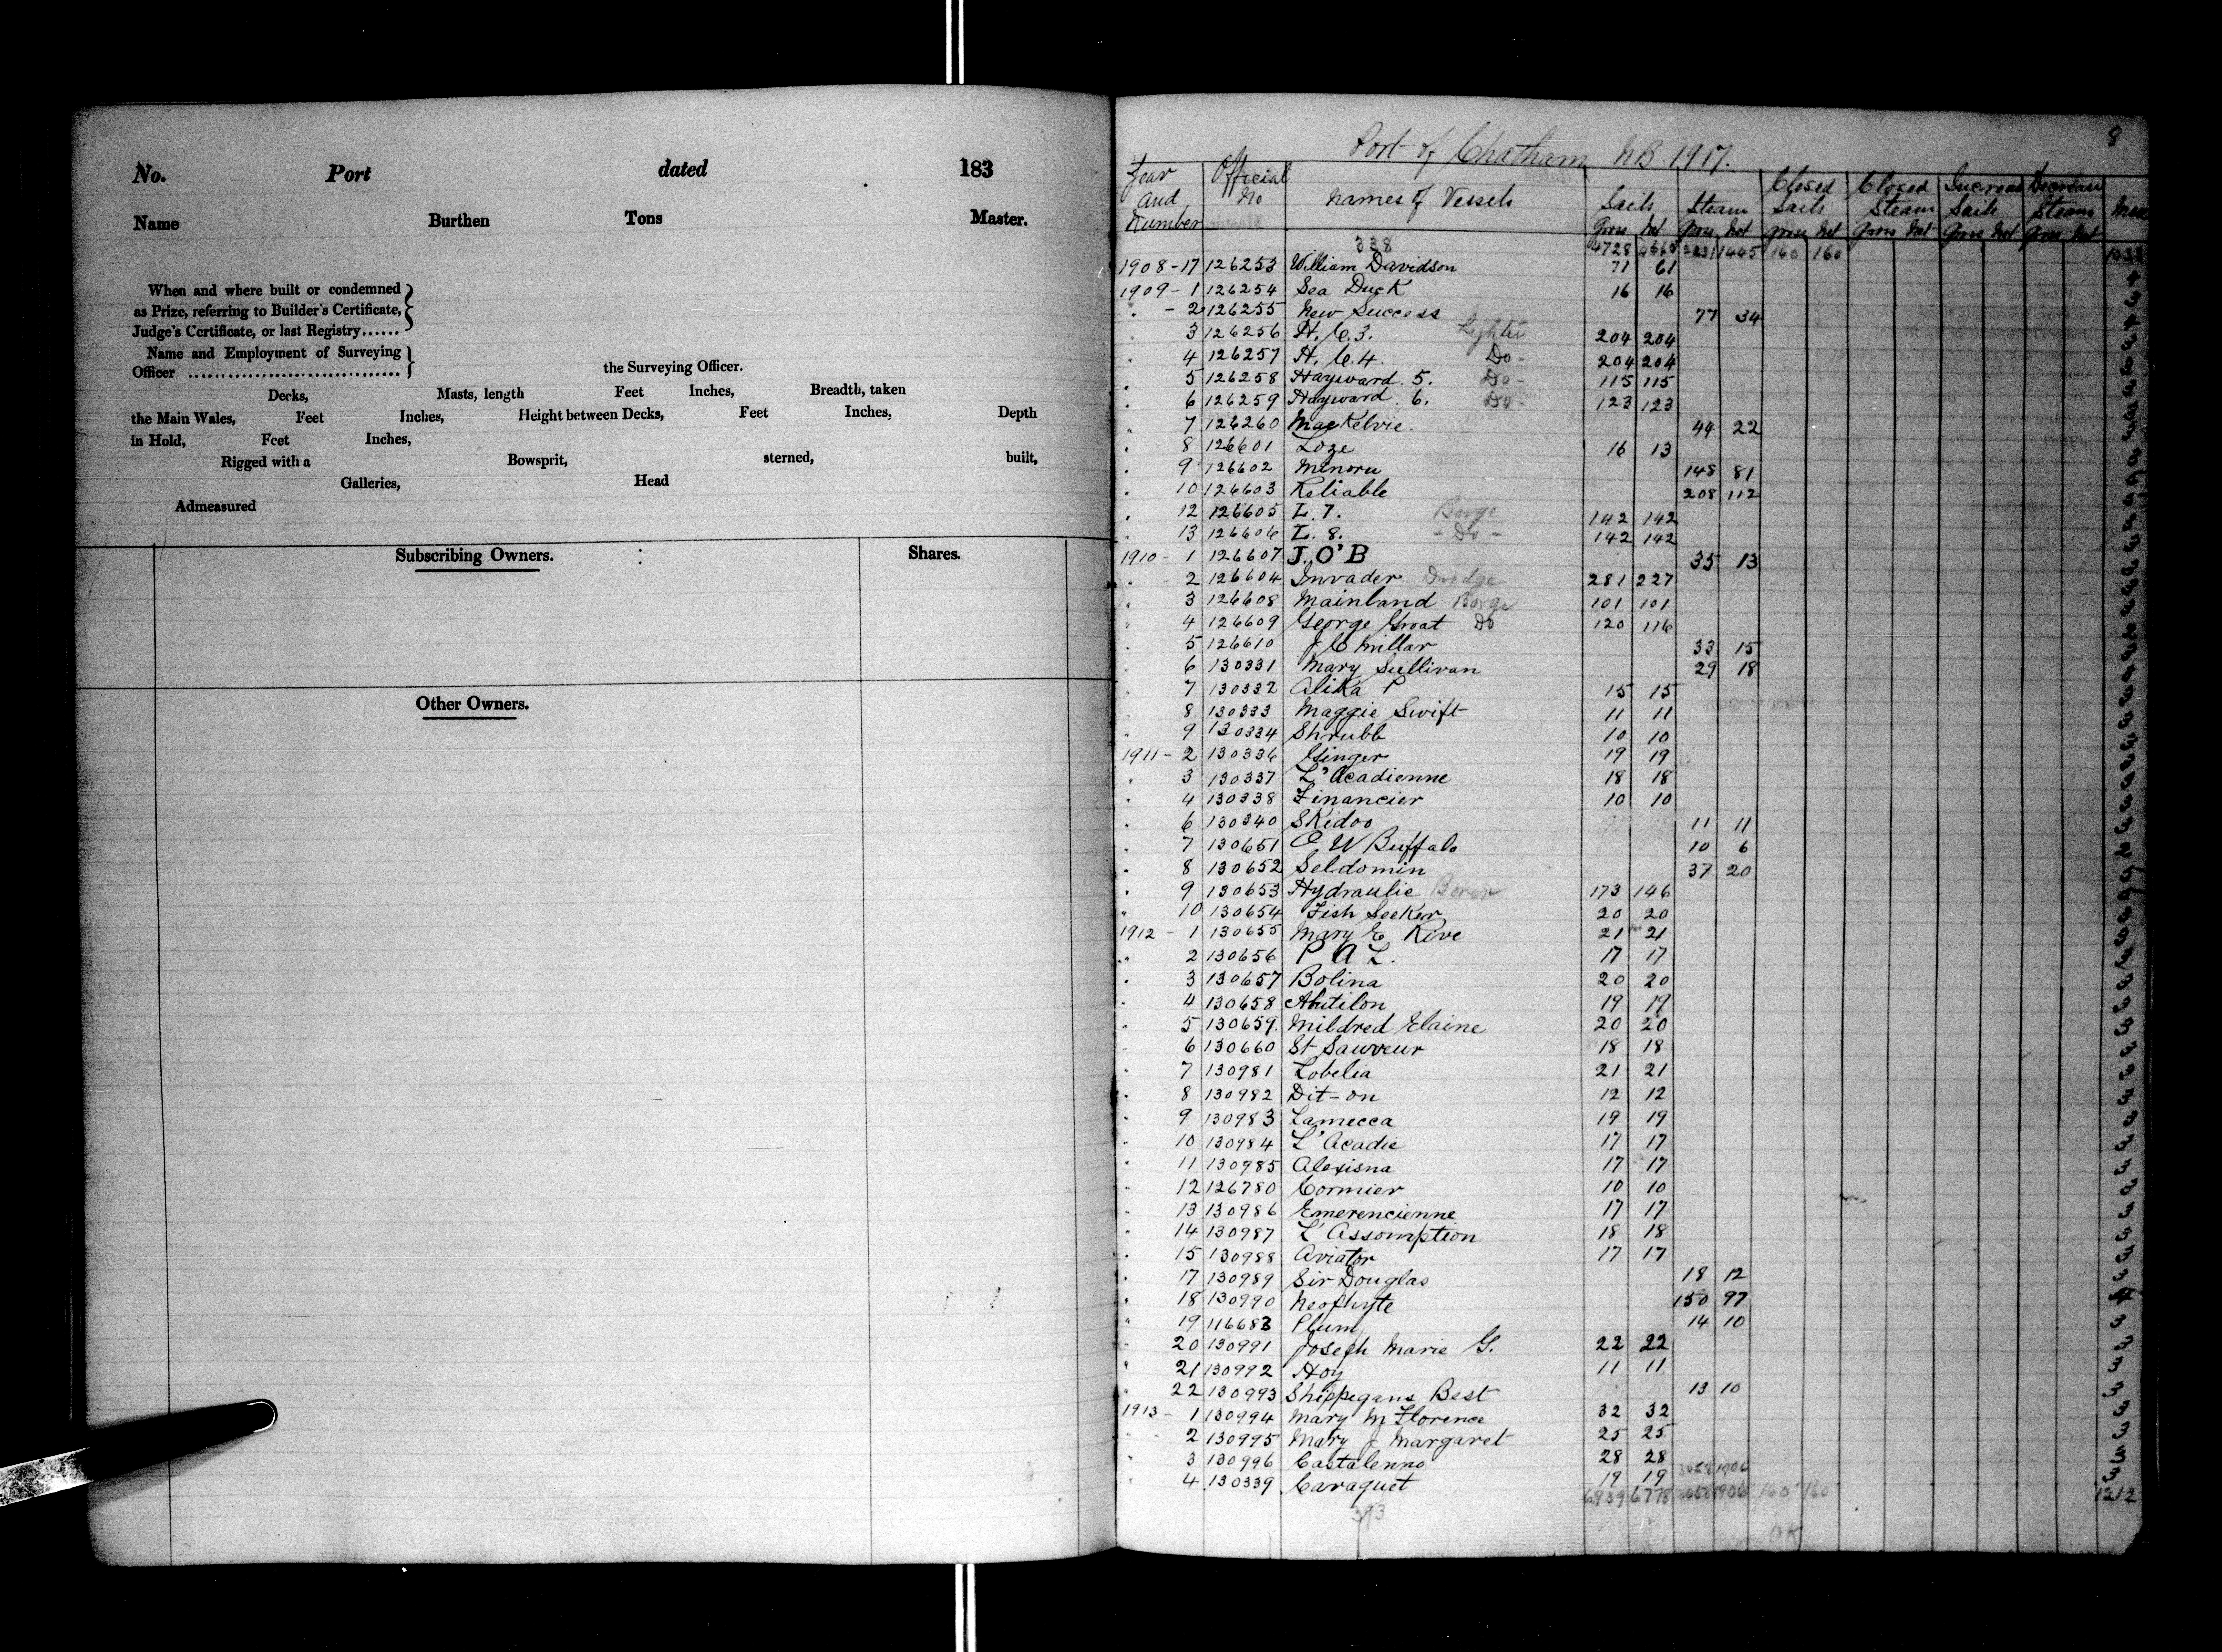 No. Port dated 183
Name Burthen Tons Master.
When and where built or condemned
as Prize, referring to Builder's Certificate,
Judge's Certificate, or last Registry......
Name and Employment of Surveying
Officer ................................ the Surveying Officer.
Decks, Masts, length Feet Inches, Breadth, taken
the Main Wales, Feet Inches, Height between Decks, Feet Inches, Depth
in Hold, Feet Inches,
Rigged with a Bowsprit, sterned, built,
Galleries, Head
Admeasured
Subscribing Owners. Shares.
Other Owners.
8
Port of Chatham NB. 1917.
Year and Number Official No Names of Vessels Sails Gross Net Steam Gross Net Closed Sails Gross Net Closed Steam Gross Net Increase Sails Gross Net Decrease Steam Gross Net
338 4728 4660 2231 1445 160 160 1038
1908-17 126253 William Davidson 71 61 4
1909-1 126254 Sea Duck 16 16 3
" - 2 126255 New Success 77 34
" 3 126256 H. C. 3. Lighter 204 204
" 4 126257 H. C. 4. Do- 204 204
" 5 126258 Hayward. 5. Do- 115 115
" 6 126259 Hayward. 6. Do- 123 123
" 7 126260 MacKelvie. 44 22
" 8 126601 Loze 16 13
" 9 126602 Minoru 148 81
" 10 126603 Reliable 208 112
" 12 126605 L. 7. Barge 142 142
" 13 126606 L. 8. - Do - 142 142
1910-1 126607 J. O'B 35 13
" 2 126604 Invader Dredge 281 227
" 3 126608 Mainland Barge 101 101
" 4 126609 George Groat Do 120 116
" 5 126610 J C Millar 33 15
" 6 130331 Mary Sullivan 29 18
" 7 130332 Alika P 15 15
" 8 130333 Maggie Swift 11 11
" 9 130334 Shrubb 10 10
1911-2 130336 Ginger 19 19
" 3 130337 L'Acadienne 18 18
" 4 130338 Financier 10 10
" 6 130340 Skidoo 11 11
" 7 130651 C W Buffalo 10 6
" 8 130652 Seldomin 37 20
" 9 130653 Hydraulic 173 146
" 10 130654 Fish Seeker 20 20
1912-1 130655 Mary E Rive 21 21
" 2 130656 P A L. 17 17
" 3 130657 Bolina 20 20
" 4 130658 Abutilon 19 19
" 5 130659. Mildred Elaine 20 20
" 6 130660 St Sauveur 18 18
" 7 130981 Lobelia 21 21
" 8 130982 Dit-on 12 12
" 9 130983 Lamecca 19 19
" 10 130984 L'Acadie 17 17
" 11 130985 Alexisna 17 17
" 12 126780 Cormier 10 10
" 13 130986 Emerencienne 17 17
" 14 130987 L'Assomption 18 18
" 15 130988 Aviator 17 17
" 17 130989 Sir Douglas 18 12 3
" 18 130990 Neophyte 150 97 4
" 19 116683 Plum 14 10 3
" 20 130991 Joseph Marie G. 22 22 3
" 21 130992 Hoy 11 11 3
" 22 130993 Shippegans Best 13 10 3
1913-1 130994 Mary M Florence 32 32 3
" 2 130995 Mary J Margaret 25 25 3
" 3 130996 Castalenno 28 28 3
" 4 130339 Caraquet 19 19 3058 1906 3
6939 6778 3058 1906 160 160 1212
393
OK